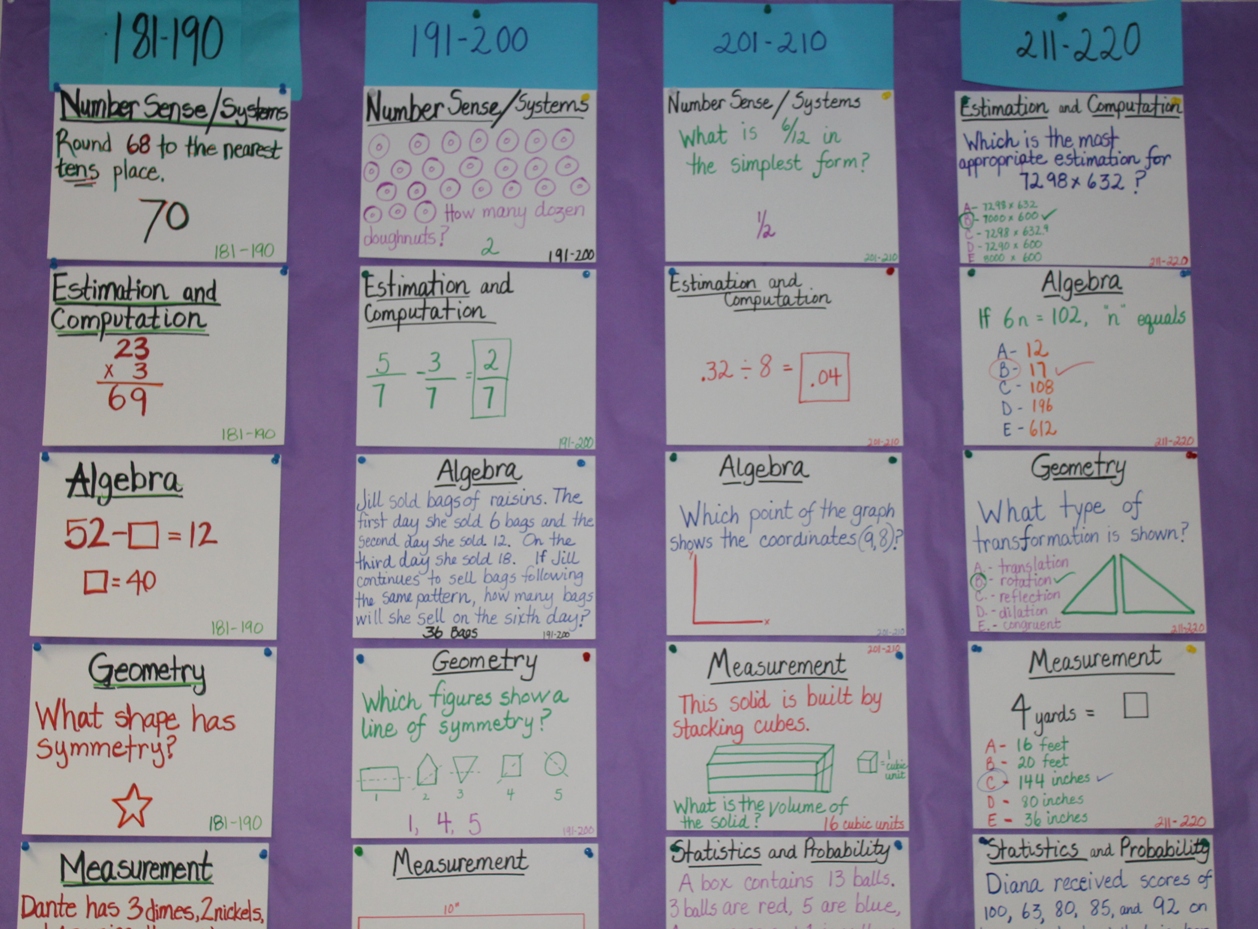 181-190
Number Sense/Systems
Round 68 to the nearest
tens place.
70
181-190
Estimation and
Computation
23
x 3
69
181-190
Algebra
52-□=12
□=40
181-190
Geometry
What shape has
symmetry?
181-190
Measurement
Dante has 3 dimes, 2 nickels,
191-200
Number Sense/Systems
How many dozen
doughnuts?
2
191-200
Estimation and
Computation
5/7 - 3/7 = 2/7
191-200
Algebra
Jill sold bags of raisins. The
first day she sold 6 bags and the
second day she sold 12. On the
third day she sold 18. If Jill
continues to sell bags following
the same pattern, how many bags
will she sell on the sixth day?
36 Bags
191-200
Geometry
Which figures show a
line of symmetry?
1 2 3 4 5
1, 4, 5
191-200
Measurement
10"
201-210
Number Sense/Systems
What is 6/12 in
the simplest form?
1/2
201-210
Estimation and
Computation
.32 ÷ 8 = .04
201-210
Algebra
Which point of the graph
shows the coordinates (9,8)?
y
x
201-210
Measurement
This solid is built by
stacking cubes.
=1 cubic
unit
What is the volume of
the solid?
16 cubic units
Statistics and Probability
A box contains 13 balls.
3 balls are red, 5 are blue,
211-220
Estimation and Computation
Which is the most
appropriate estimation for
7298 x 632 ?
A- 7298 x 632
B- 7000 x 600 ✓
C- 7298 x 632.9
D- 7290 x 600
E 8000 x 600
211-220
Algebra
If 6n = 102, "n" equals
A- 12
B- 17 ✓
C- 108
D- 196
E- 612
211-220
Geometry
What type of
transformation is shown?
A.- translation
B.- rotation ✓
C.- reflection
D.- dilation
E.- congruent
211-220
Measurement
4 yards = □
A- 16 feet
B- 20 feet
C- 144 inches ✓
D- 80 inches
E- 36 inches
211-220
Statistics and Probability
Diana received scores of
100, 63, 80, 85, and 92 on